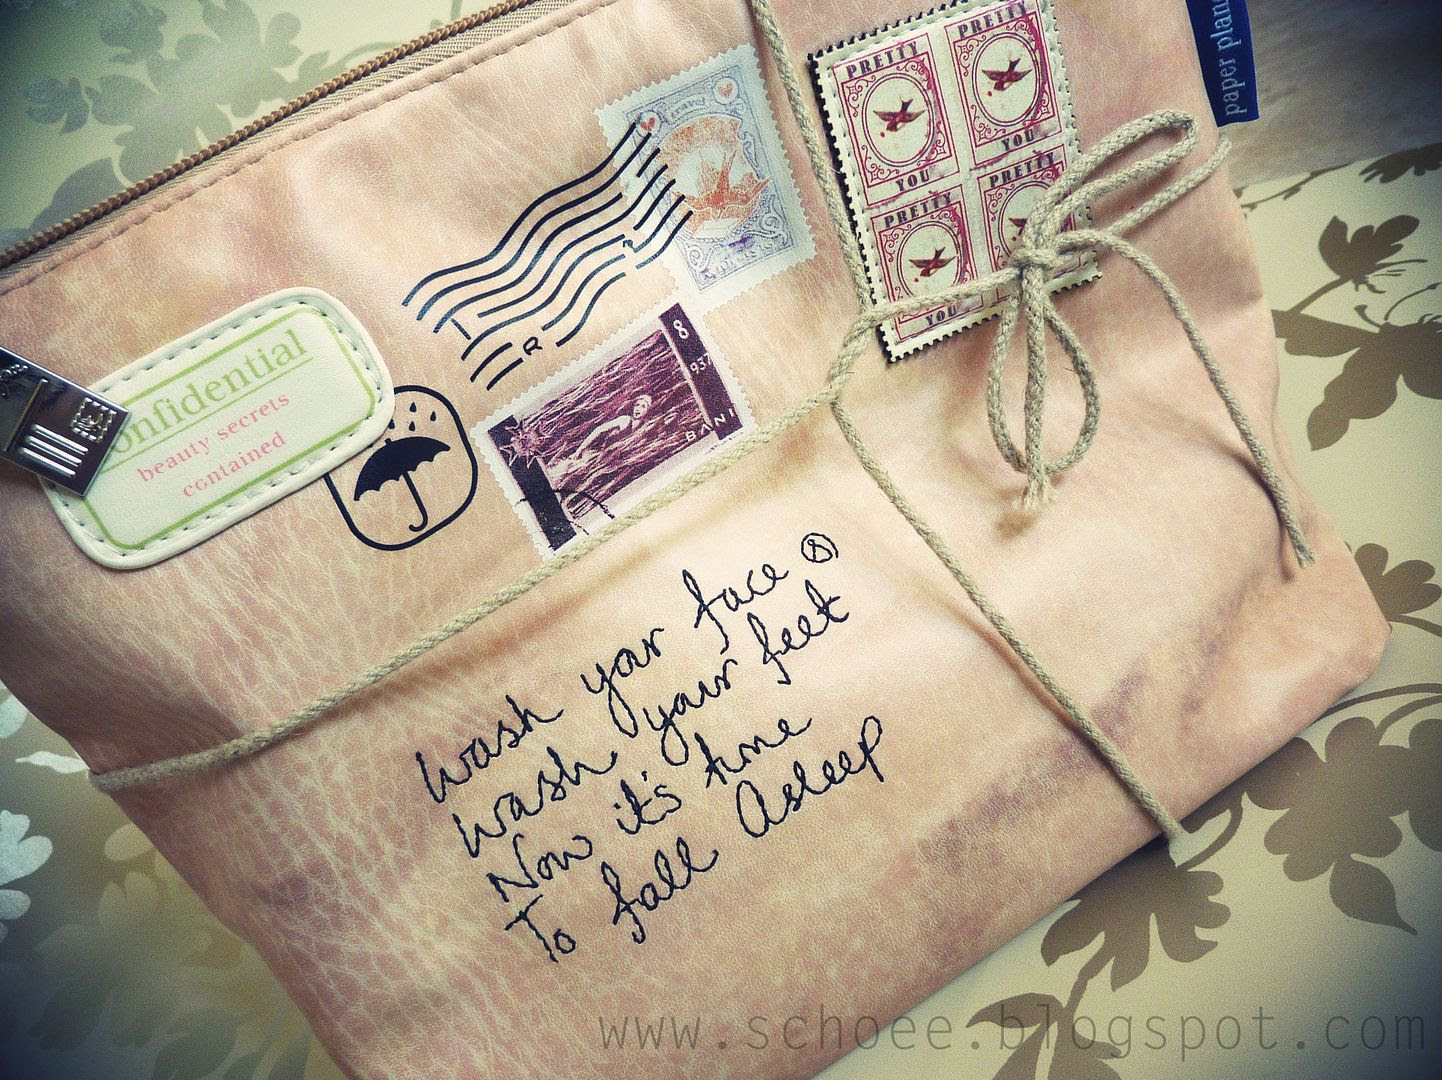 paper plane
travel
PRETTY
YOU
PRETTY
YOU
PRETTY
YOU
PRETTY
8
937
BANI
R
Confidential
beauty secrets
contained
wash your face &
wash your feet
Now it's time
To fall Asleep
www.schoee.blogspot.com